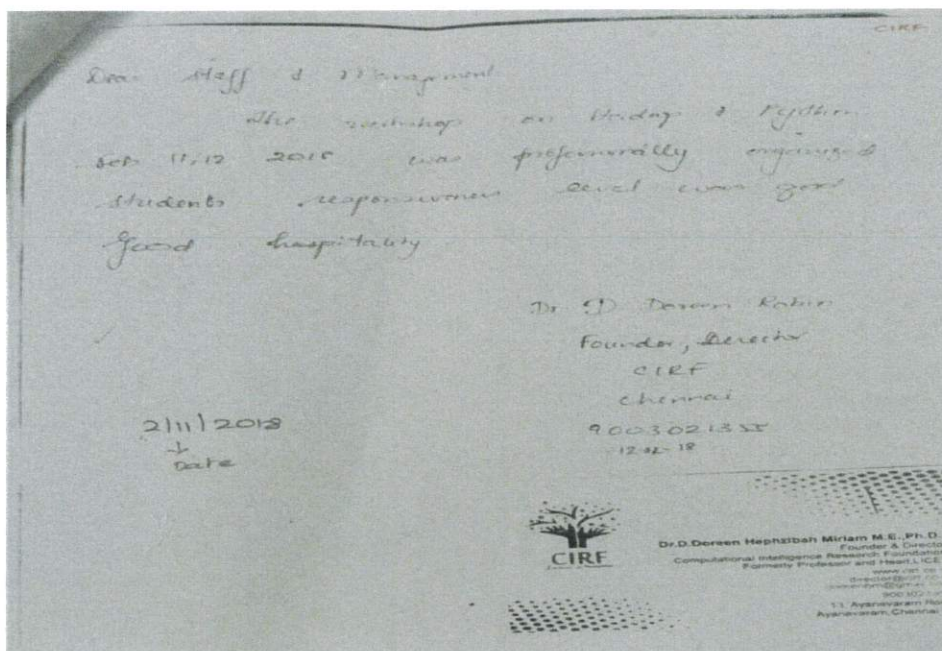 CIRF
Dear Staff & Management
The workshop on Hadoop & Python
Feb 11,12 2018 was professionally organized
Students responsiveness level was good
Good hospitality
Dr. D Doreen Robin
Founder, Director
CIRF
Chennai
9003021355
12-02-18
2/11/2018
Date
CIRF
Dr.D.Doreen Hephzibah Miriam M.E.,Ph.D.
Founder & Director
Computational Intelligence Research Foundation
Formerly Professor and Head, LICET
Ayanavaram
Ayanavaram, Chennai